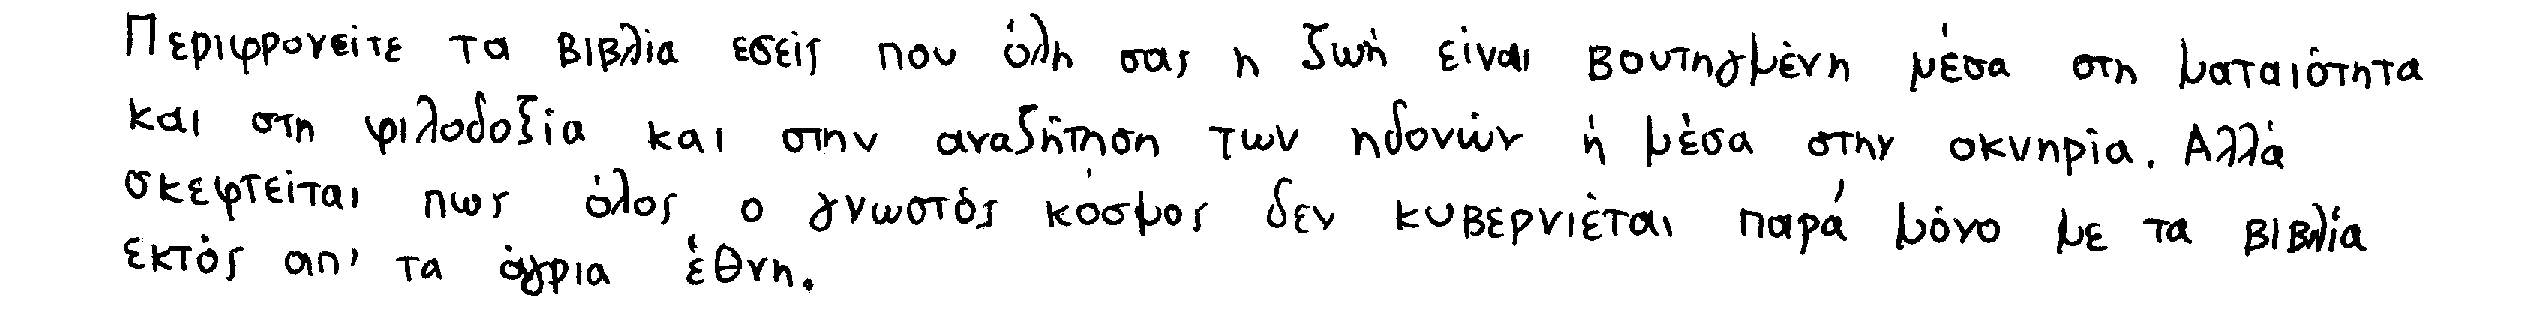 Περιφρονείτε τα βιβλία εσείς που όλη σας η ζωή είναι βουτηγμένη μέσα στη ματαιότητα
και στη φιλοδοξία και στην αναζήτηση των ηδονών ή μέσα στην οκνηρία. Αλλά
σκεφτείται πως όλος ο γνωστός κόσμος δεν κυβερνιέται παρά μόνο με τα βιβλία
εκτός απ' τα άγρια έθνη.